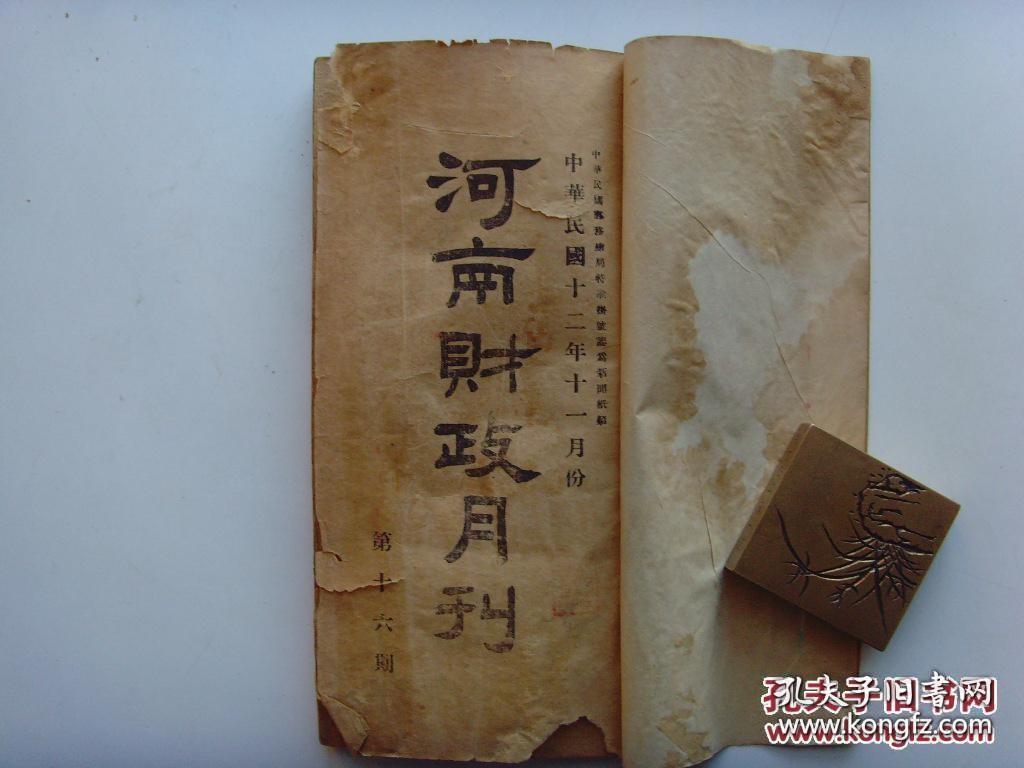 中華民國郵務總局特准掛號認爲新聞紙類
中華民國十二年十一月份
河南財政月刊
第十六期
孔夫子旧書网
www.kongfz.com